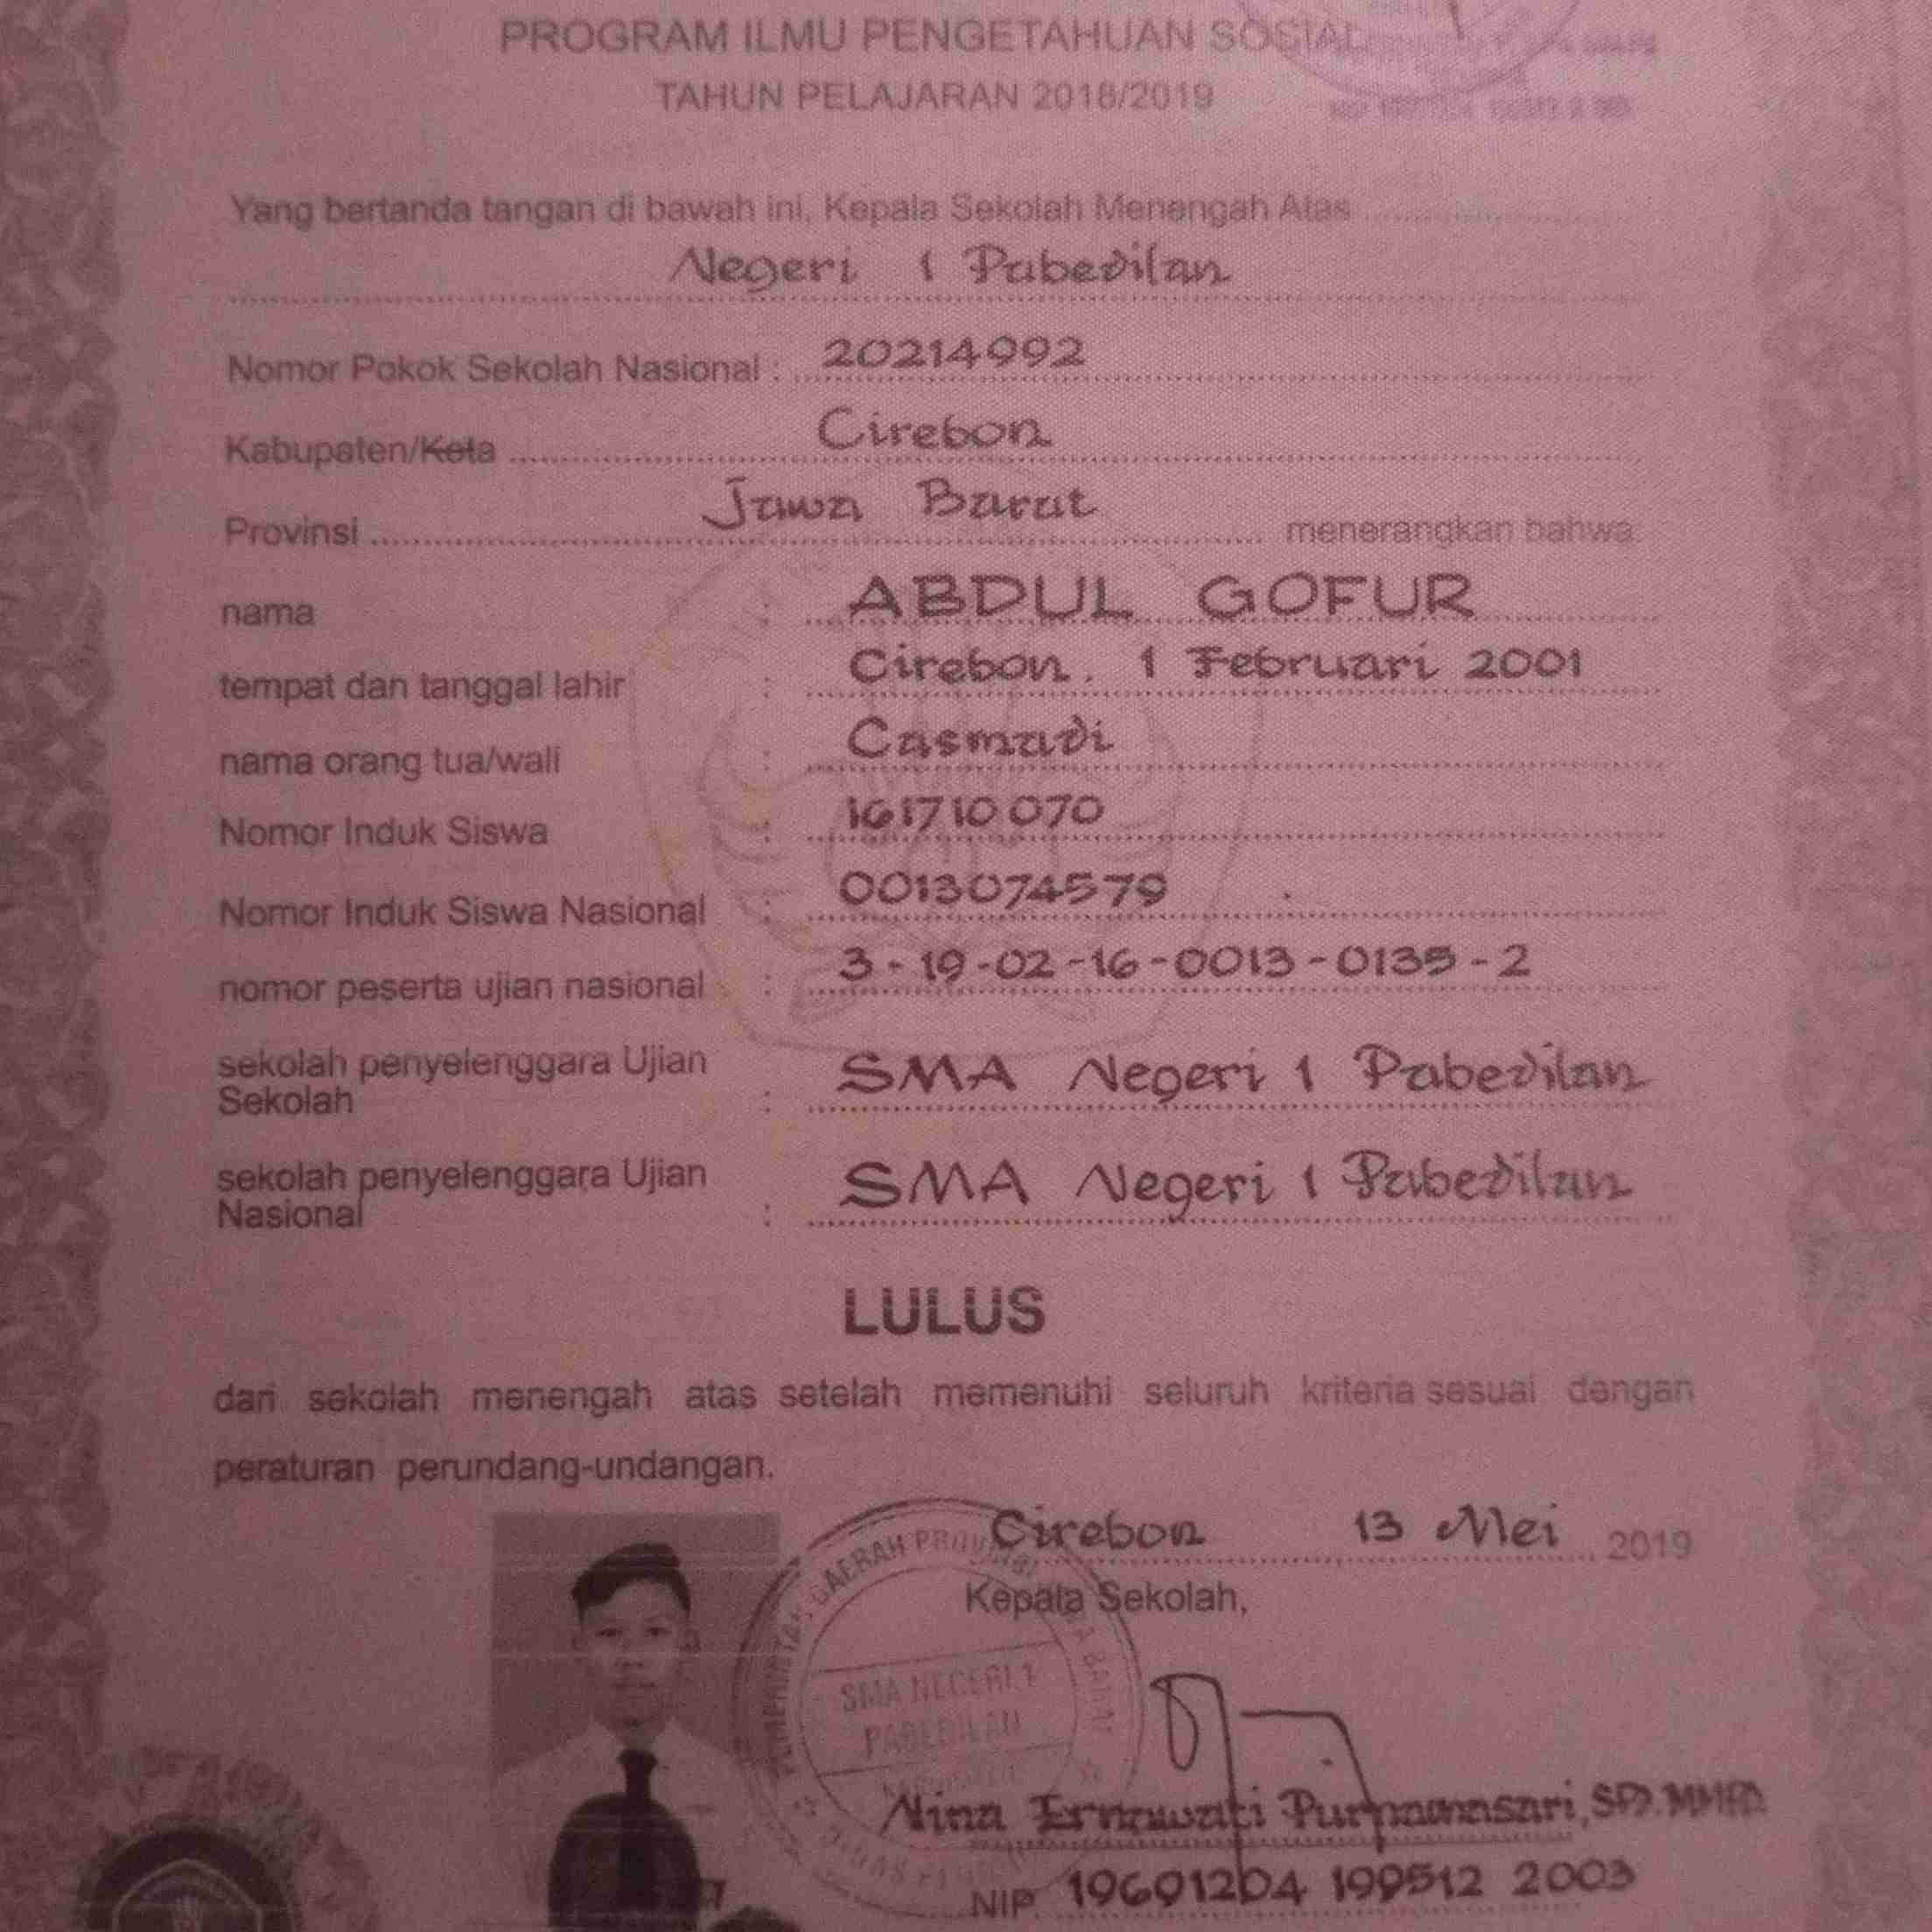 PROGRAM ILMU PENGETAHUAN SOSIAL
TAHUN PELAJARAN 2018/2019
Yang bertanda tangan di bawah ini, Kepala Sekolah Menengah Atas
Negeri 1 Pabedilan
Nomor Pokok Sekolah Nasional : 20214992
Kabupaten/Kota Cirebon
Provinsi Jawa Barat menerangkan bahwa:
nama : ABDUL GOFUR
tempat dan tanggal lahir : Cirebon, 1 Februari 2001
nama orang tua/wali : Casmadi
Nomor Induk Siswa : 161710070
Nomor Induk Siswa Nasional : 0013074579
nomor peserta ujian nasional : 3-19-02-16-0013-0135-2
sekolah penyelenggara Ujian
Sekolah : SMA Negeri 1 Pabedilan
sekolah penyelenggara Ujian
Nasional : SMA Negeri 1 Pabedilan
LULUS
dari sekolah menengah atas setelah memenuhi seluruh kriteria sesuai dengan
peraturan perundang-undangan.
Cirebon 13 Mei 2019
Kepala Sekolah,
DAERAH
SMA NEGERI 1
PABEDILAN
Nina Ernawati Purnamasari, SPd.
NIP. 19691204 199512 2003